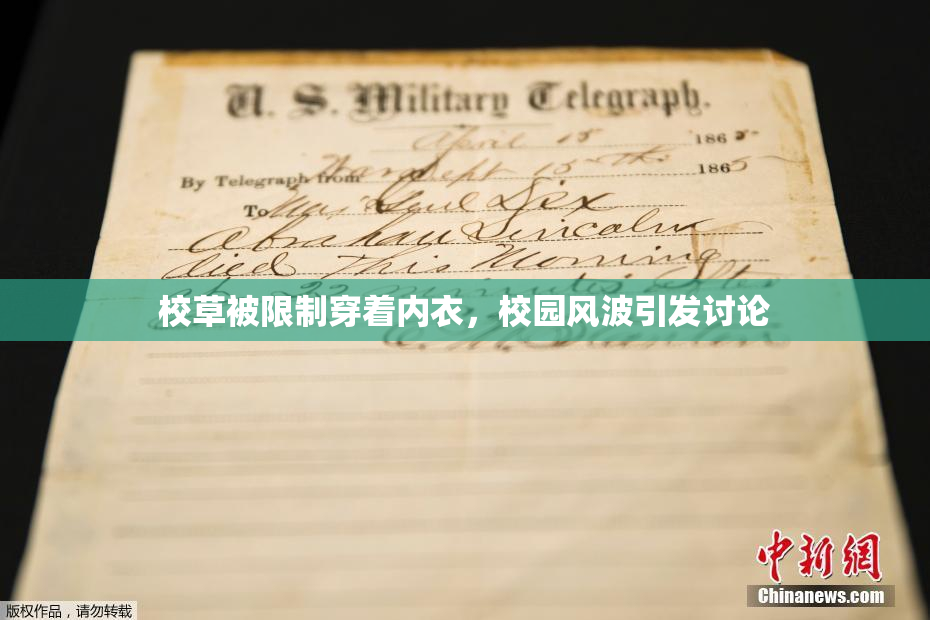 U. S. Military Telegraph.
April 15 1865
By Telegraph from War Dept 15th 1865
To Maj Genl Dix
Abraham Lincoln
died This Morning
at 22 minutes after
校草被限制穿着内衣，校园风波引发讨论
E. M. Stanton
中新网
Chinanews.com
版权作品，请勿转载